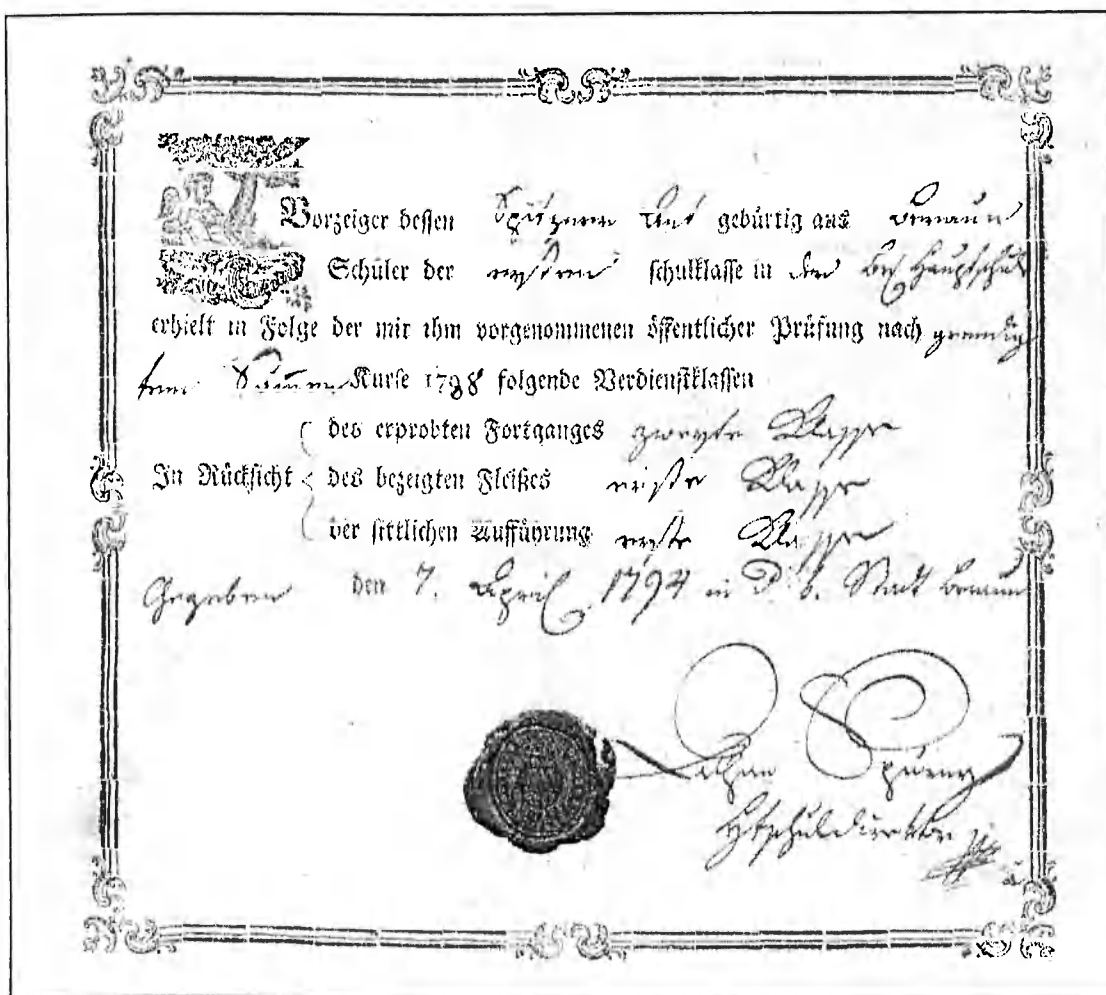 Vorzeiger dessen gebürtig aus Beraun
Schüler der ersten schulklasse in der Hauptschul
erhielt in Folge der mit ihm vorgenommenen öffentlicher Prüfung nach geendig
tem Kurse 1798 folgende Verdienstklassen
des erprobten Fortganges zweyte Klasse
In Rücksicht des bezeigten Fleißes erste Klasse
der sittlichen Aufführung erste Klasse
Gegeben den 7. April 1794 in d. k. Stadt Beraun